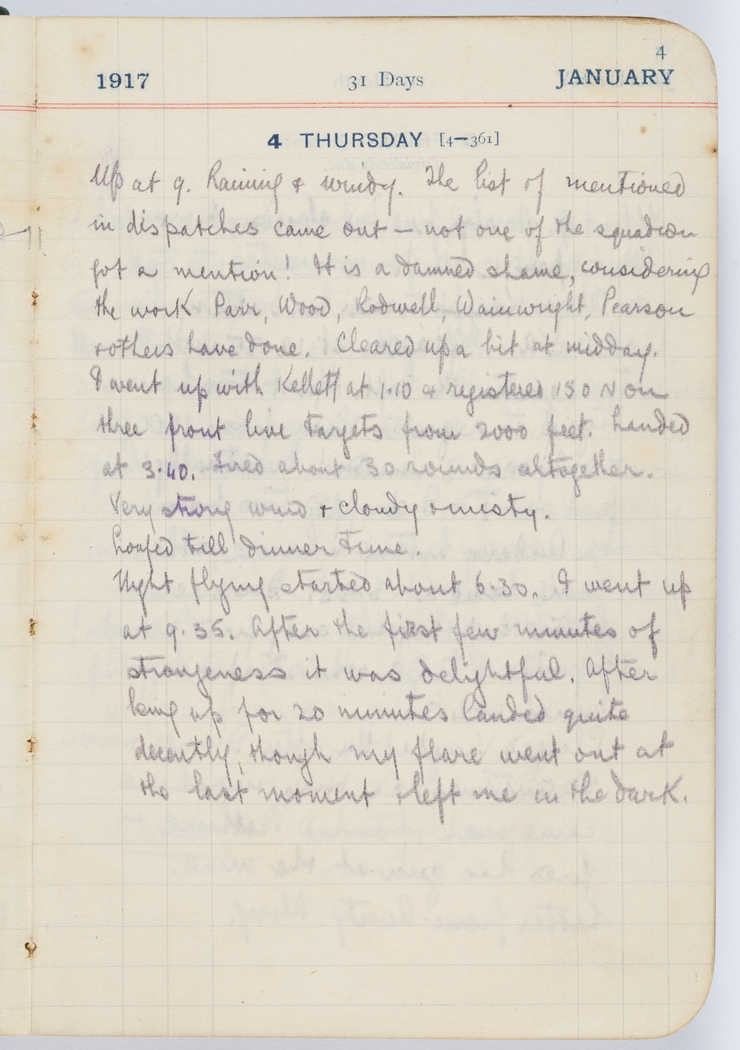 4
1917 31 Days JANUARY
4 THURSDAY [4-361]
Up at 9. Raining & windy. The list of mentioned
in dispatches came out – not one of the squadron
got a mention! It is a damned shame, considering
the work Parr, Wood, Rodwell, Wainwright, Pearson
& others have done. Cleared up a bit at midday.
I went up with Kellett at 1.10 & registered 150 N on
three front line targets from 2000 feet. Landed
at 3.40. Fired about 30 rounds altogether.
Very strong wind & cloudy & misty.
Loafed till dinner time.
Night flying started about 6.30. I went up
at 9.35. After the first few minutes of
strangeness it was delightful. After
being up for 20 minutes landed quite
decently, though my flare went out at
the last moment & left me in the dark.